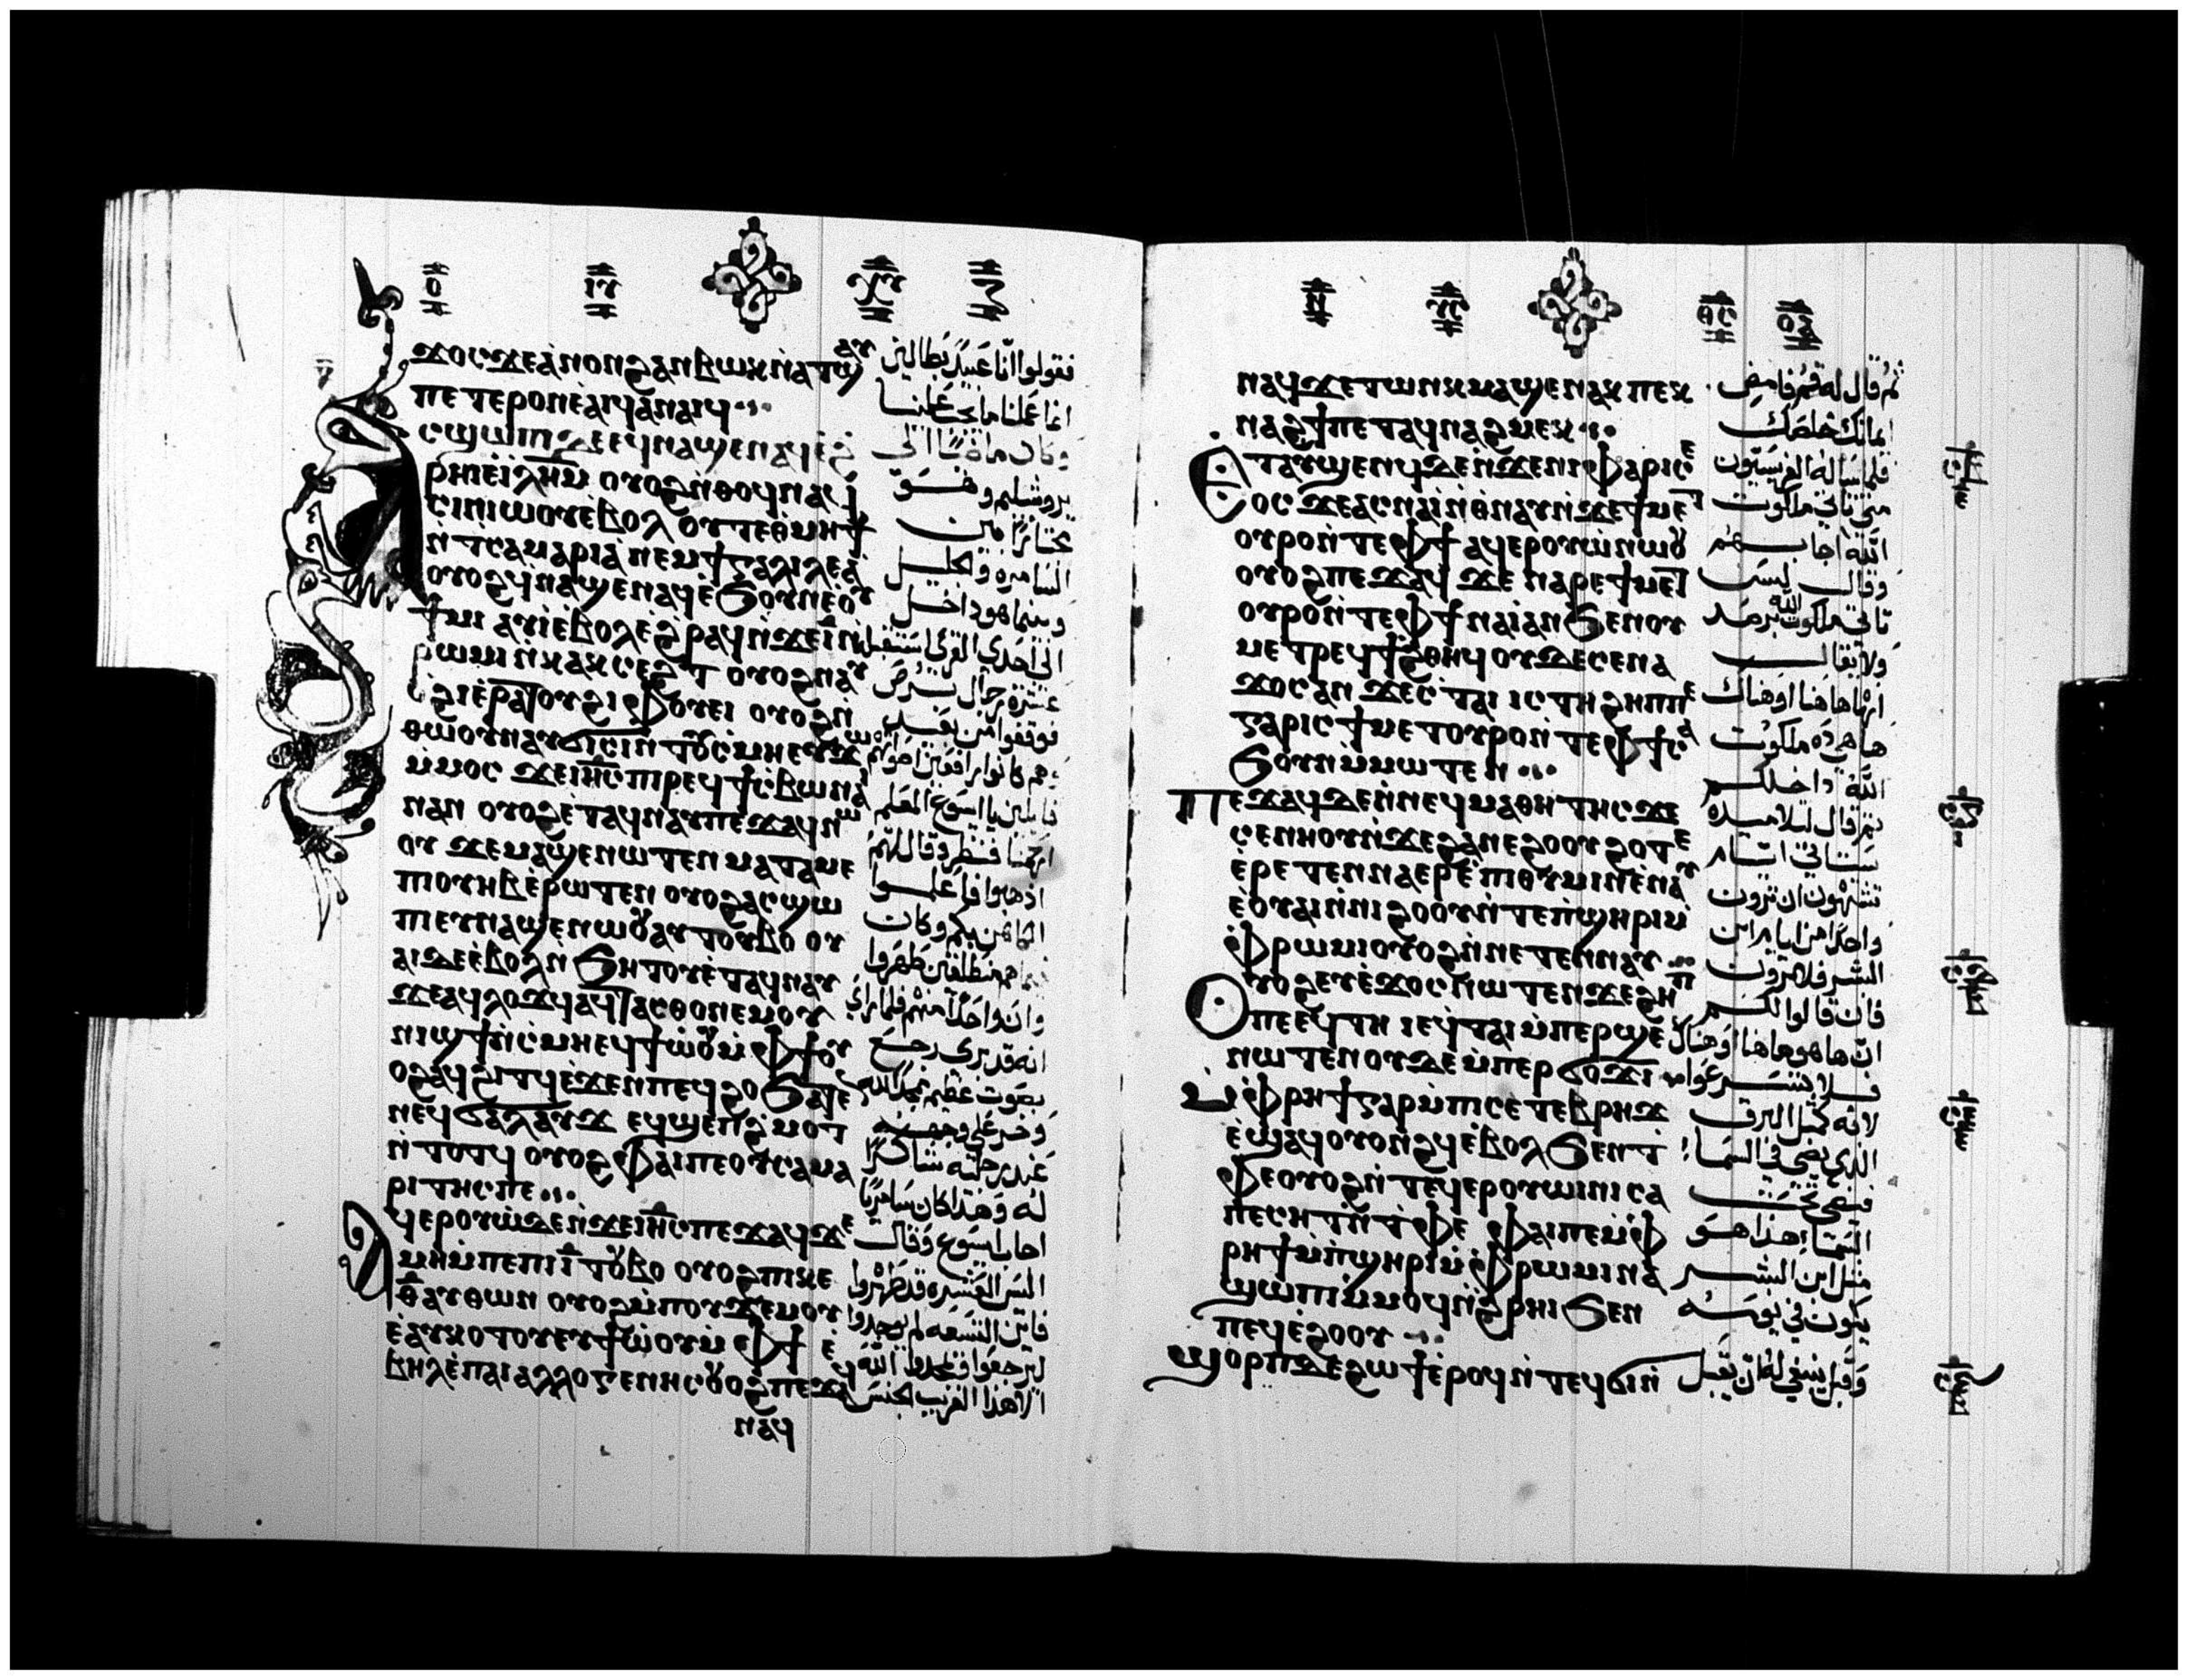 ϫⲟⲥ ϫⲉ ⲁ̀ⲛⲟⲛ ϩⲁⲛⲃⲱⲕ ⲛ̀ⲁⲧϣⲁⲩ
ⲡⲉⲧⲉⲣⲟⲛ ⲉ̀ⲁⲓϥ ⲁⲛⲁⲓϥ
ⲥϣⲱⲡⲓ ⲇⲉ ⲉϥⲛⲁϣⲉⲛⲁϥ ⲉ̀ϩ
ⲣⲏⲓ ⲉ̀ⲓⲗ̅ⲏ̅ⲙ̅ ⲟⲩⲟϩ ⲛ̀ⲑⲟϥ ⲛⲁϥ
ⲥⲓⲛⲓⲱⲟⲩ ⲉⲃⲟⲗ ⲟⲩⲧⲉ ⲑ̀ⲙⲏϯ
ⲛ̀ⲧⲥⲁⲙⲁⲣⲓⲁ̀ ⲛⲉⲙ ϯⲅⲁⲗⲓⲗⲉⲁ̀
ⲟⲩⲟϩ ϥ̀ⲛⲁϣⲉⲛⲁϥ ⲉ̀ϧⲟⲩⲛ ⲉⲟⲩ
ϯⲙⲓ ⲁⲩⲓ̀ ⲉ̀ⲃⲟⲗ ⲉ̀ϩⲣⲁϥ ⲛ̀ϫⲉ ⲓ̅ ⲛ̀
ⲣⲱⲙⲓ ⲛ̀ⲕⲁⲕⲥⲉϩⲧ ⲟⲩⲟϩ ⲛⲁⲩ
ⲟ̀ϩⲓ ⲉ̀ⲣⲁⲧⲟⲩ ϩⲓ ⲫⲟⲩⲉⲓ ⲟⲩⲟϩ ⲛ̀
ⲑⲱⲟⲩ ⲛⲁⲩϭⲓⲥⲓ ⲛ̀ⲧⲟⲩⲥⲙⲏ ⲉⲩϫⲱ
ⲙ̀ⲙⲟⲥ ϫⲉ ⲓ̅ⲏ̅ⲥ̅ ⲡⲓⲣⲉϥϯⲥ̀ⲃⲱ ⲛⲁⲓ
ⲛⲁⲛ ⲟⲩⲟϩ ⲉ̀ⲧⲁϥⲛⲁⲩ ⲡⲉϫⲁϥ ⲛⲱ
ⲟⲩ ϫⲉ ⲙⲁϣⲉⲛⲱⲧⲉⲛ ⲙⲁⲧⲁⲙⲉ
ⲡⲓⲟⲩⲏⲃ ⲉ̀ⲣⲱⲧⲉⲛ ⲟⲩⲟϩ ⲁⲥϣⲱ
ⲡⲓ ⲉⲩⲛⲁϣⲉⲛⲱⲟⲩ ⲁⲩⲧⲟⲩⲃⲟ ⲟⲩ
ⲁⲓ ⲇⲉ ⲉ̀ⲃⲟⲗ ⲛ̀ϧⲏⲧⲟⲩ ⲉ̀ⲧⲁϥⲛⲁⲩ
ϫⲉ ⲁϥⲗⲟϫϥ ⲁϥⲧⲁⲥⲑⲟ ⲛⲉⲙ ⲟⲩ
ⲛⲓϣϯ ⲛ̀ⲥⲙⲏ ⲉϥϯⲱ̀ⲟⲩ ⲙ̀ⲫϯ ⲟⲩ
ⲟϩ ⲁϥϩⲓⲧϥ ⲉ̀ϫⲉⲛ ⲡⲉϥϩⲟ ϧⲁⲧⲉⲛ
ⲛⲉϥϭⲁⲗⲁⲩϫ ⲉϥϣⲉⲡϩ̀ⲙⲟⲧ
ⲛ̀ⲧⲟⲧϥ ⲟⲩⲟϩ ⲫⲁⲓ ⲡⲉ ⲟⲩⲥⲁⲙⲁ
ⲣⲓⲧⲏⲥ ⲡⲉ
ⲁϥⲉⲣⲟⲩⲱ̀ ⲇⲉ ⲛ̀ϫⲉ ⲓ̅ⲏ̅ⲥ̅ ⲡⲉϫⲁϥ ϫⲉ
ⲙⲏ ⲙ̀ⲡⲉ ⲡⲓⲓ̅ ⲧⲟⲩⲃⲟ ⲟⲩⲟϩ ⲡⲓⲕⲉ
ⲑ̅ ⲁⲩⲑⲱⲛ ⲟⲩⲟϩ ⲙ̀ⲡⲟⲩϫⲉⲙⲟⲩ
ⲉ̀ⲁⲩⲕⲟⲧⲟⲩ ⲉϯⲱ̀ⲟⲩ ⲙ̀ⲫϯ ⲉ̀
ⲃⲏⲗ ⲉ̀ⲡⲁⲓⲁⲗⲗⲟⲅⲉⲛⲏⲥ ⲟⲩⲟϩ ⲡⲉϫⲁϥ
ⲛⲁϥ
فتقولوا انا عبيد بطالين
انما عملنا ما يجب علينا
وكان ماضيا الى
يروشليم وهو
مجتازا بين
السامره والجليل
وبينما هو داخل
الى احدى القرى استقبله
عشرة رجال برص
فوقفوا من بعيد
وهم كانوا رافعين اصواتهم
قايلين يا ايسوع المعلم
ارحمنا فنظر وقال لهم
اذهبوا فاعلموا
الكاهن بكم وكان
فيما هم منطلقين طهروا
وان واحدا منهم فلما راى
انه قد برى رجع
بصوت عظيم يمجد الله
وخر على وجهه
عند رجليه شاكرا
له وهذا كان سامريا
اجاب ايسوع وقال
اليس العشره قد طهروا
فاين التسعه لم يوجدوا
ليرجعوا فيمجدوا الله
الا هذا الغريب الجنس
ⲛⲁϥ ϫⲉ ⲧⲱⲛⲕ ⲙⲁϣⲉⲛⲁⲕ ⲡⲉⲕ
ⲛⲁϩϯ ⲡⲉⲧⲁϥⲛⲁϩⲙⲉⲕ
ⲉⲧⲁⲩϣⲉⲛϥ ⲇⲉ ⲛ̀ϫⲉ ⲛⲓⲫⲁⲣⲓⲥⲉ
ⲟⲥ ϫⲉ ⲁⲥⲛⲁⲓ̀ ⲛ̀ⲑⲛⲁⲩ ⲛ̀ϫⲉ ϯⲙⲉⲧ
ⲟⲩⲣⲟ ⲛ̀ⲧⲉ ⲫϯ ⲁϥⲉⲣⲟⲩⲱ̀ ⲛⲱⲟⲩ
ⲟⲩⲟϩ ⲡⲉϫⲁϥ ϫⲉ ⲛⲁⲣⲉ ϯⲙⲉⲧ
ⲟⲩⲣⲟ ⲛ̀ⲧⲉ ⲫϯ ⲛⲁⲓ̀ ⲁⲛ ϧⲉⲛ ⲟⲩ
ⲙⲉⲧⲣⲉϥϯϩ̀ⲑⲏϥ ⲟⲩⲇⲉ ⲥⲉⲛⲁ
ϫⲟⲥ ⲁⲛ ϫⲉ ⲥ̀ⲧⲁⲓ ⲓⲥ ⲧⲏ ϩⲏⲡⲡⲉ
ⲅⲁⲣ ⲓⲥ ϯⲙⲉⲧⲟⲩⲣⲟ ⲛ̀ⲧⲉ ⲫϯ ⲥⲁ
ϧⲟⲩⲛ ⲙ̀ⲙⲱⲧⲉⲛ
ⲡⲉϫⲁϥ ⲇⲉ ⲛ̀ⲛⲉϥⲙⲁⲑⲏⲧⲏⲥ ϫⲉ
ⲥⲉⲛⲏⲟⲩ ⲛ̀ϫⲉ ϩⲁⲛⲉϩⲟⲟⲩ ϩⲟⲧⲉ
ⲉ̀ⲣⲉⲧⲉⲛⲛⲁⲉⲣⲉ̀ⲡⲓⲑⲩⲙⲓⲛ ⲉ̀ⲛⲁⲩ
ⲉ̀ⲟⲩⲁⲓ ⲛ̀ⲛⲓⲉ̀ϩⲟⲟⲩ ⲛ̀ⲧⲉ ⲡ̀ϣⲏⲣⲓ ⲙ̀
ⲫ̀ⲣⲱⲙⲓ ⲟⲩⲟϩ ⲛ̀ⲛⲉⲧⲉⲛⲛⲁⲩ
ⲟⲩⲟϩ ⲉⲩⲉ̀ϫⲟⲥ ⲛⲱⲧⲉⲛ ϫⲉ ϩⲏⲡ
ⲡⲉ ⲉϥⲧⲏ ⲓⲉ ϥ̀ⲧⲁⲓ ⲙ̀ⲡⲉⲣϣⲉ
ⲛⲱⲧⲉⲛ ⲟⲩⲇⲉ ⲙ̀ⲡⲉⲣϭⲟϫⲓ
ⲙ̀ⲫ̀ⲣⲏϯ ⲅⲁⲣ ⲙ̀ⲡⲓⲥⲉⲧⲉⲃⲣⲏϫ
ⲉ̀ϣⲁϥⲟⲩⲟⲛϩϥ ⲉ̀ⲃⲟⲗ ϧⲉⲛ ⲧ
ⲫⲉ ⲟⲩⲟϩ ⲛ̀ⲧⲉϥⲉⲣⲟⲩⲱⲓⲛⲓ ⲥⲁ
ⲡⲉⲥⲏⲧ ⲛ̀ⲧ̀ⲫⲉ ⲫⲁⲓ ⲡⲉ ⲙ̀ⲫ̀
ⲣⲏϯ ⲙ̀ⲡ̀ϣⲏⲣⲓ ⲙ̀ⲫ̀ⲣⲱⲙⲓ ⲛⲁ
ϣⲱⲡⲓ ⲙ̀ⲙⲟϥ ⲛ̀ϩ̀ⲣⲏⲓ ϧⲉⲛ
ⲡⲉϥⲉ̀ϩⲟⲟⲩ
ϣⲟⲣⲡ ⲇⲉ ϩⲱϯ ⲉ̀ⲣⲟϥ ⲛ̀ⲧⲉϥϭⲓ ⲛ̀
ثم قال له قم فامض
ايمانك خلصك
فلما ساله الفريسيون
متى تاتي ملكوت
الله اجابهم
وقال ليس
تاتي ملكوت الله برصد
ولا يقال
انها هاهنا او هناك
ها هي ذه ملكوت
الله داخلكم
ثم قال لتلاميذه
ستاتي ايام
تشتهون ان تروت
واحدا من ايام ابن
البشر فلا تروت
فان قالوا لكم
ان ها هو هاهنا او هناك
فلا تسرعوا
لانه كمثل البرق
الذي يضي في السما
فيضي تحت
السما هذا هو
مثل ابن البشر
يكون في يومه
وقبل ينبغي له ان يقبل